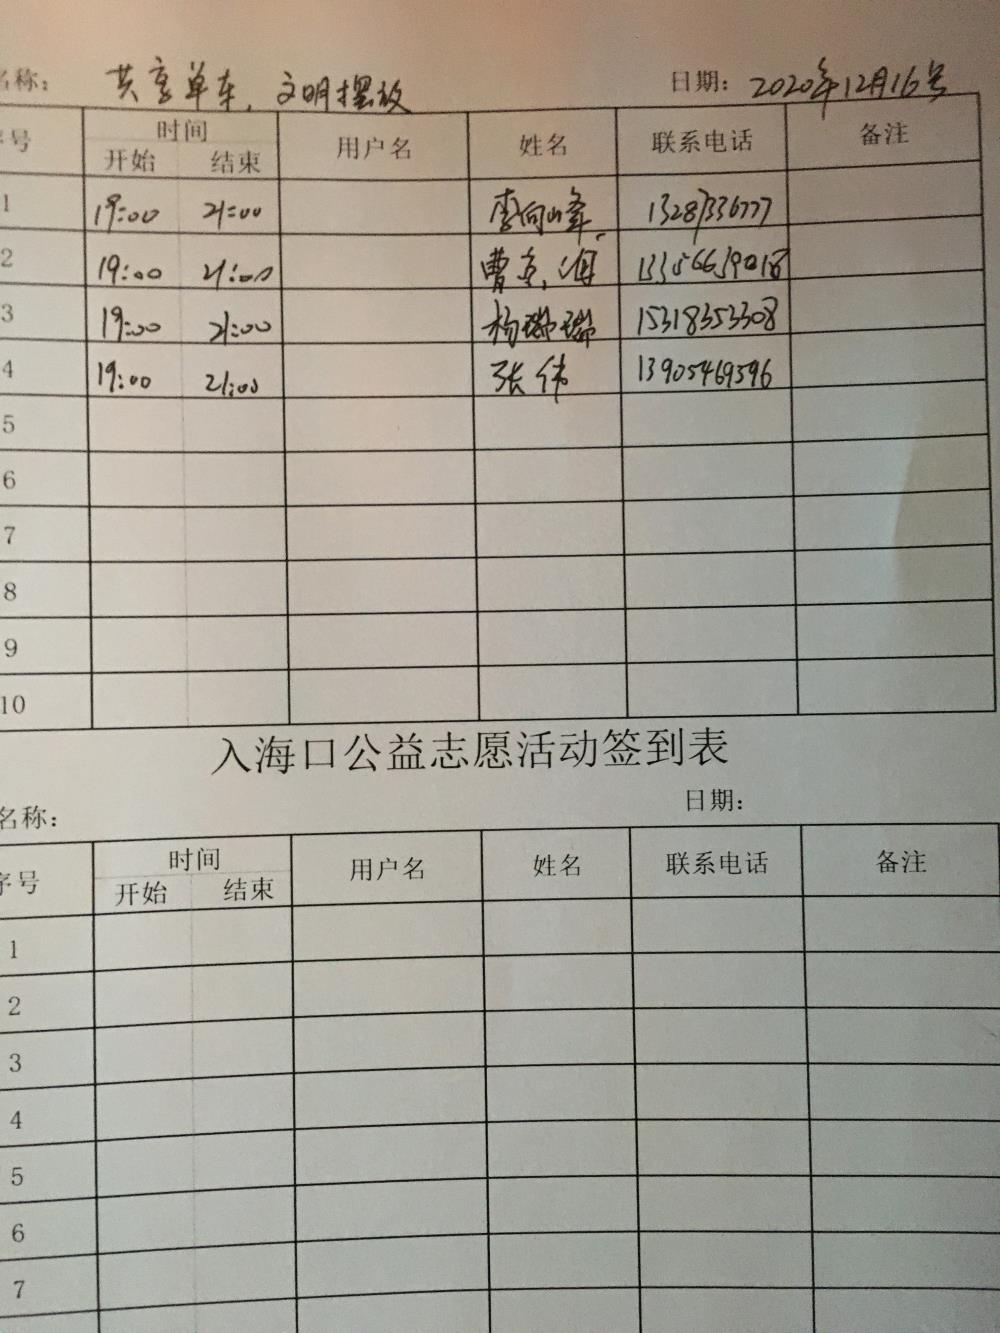 名称: 共享单车,文明摆放 日期: 2020年12月16号
序号 时间 开始 结束 用户名 姓名 联系电话 备注
1 19:00 21:00 李向峰 13287336777
2 19:00 21:00 曹
3 19:00 21:00 杨瑞瑞 15318353308
4 19:00 21:00 张伟 13905469596
5
6
7
8
9
10
入海口公益志愿活动签到表
名称: 日期:
序号 时间 开始 结束 用户名 姓名 联系电话 备注
1
2
3
4
5
6
7